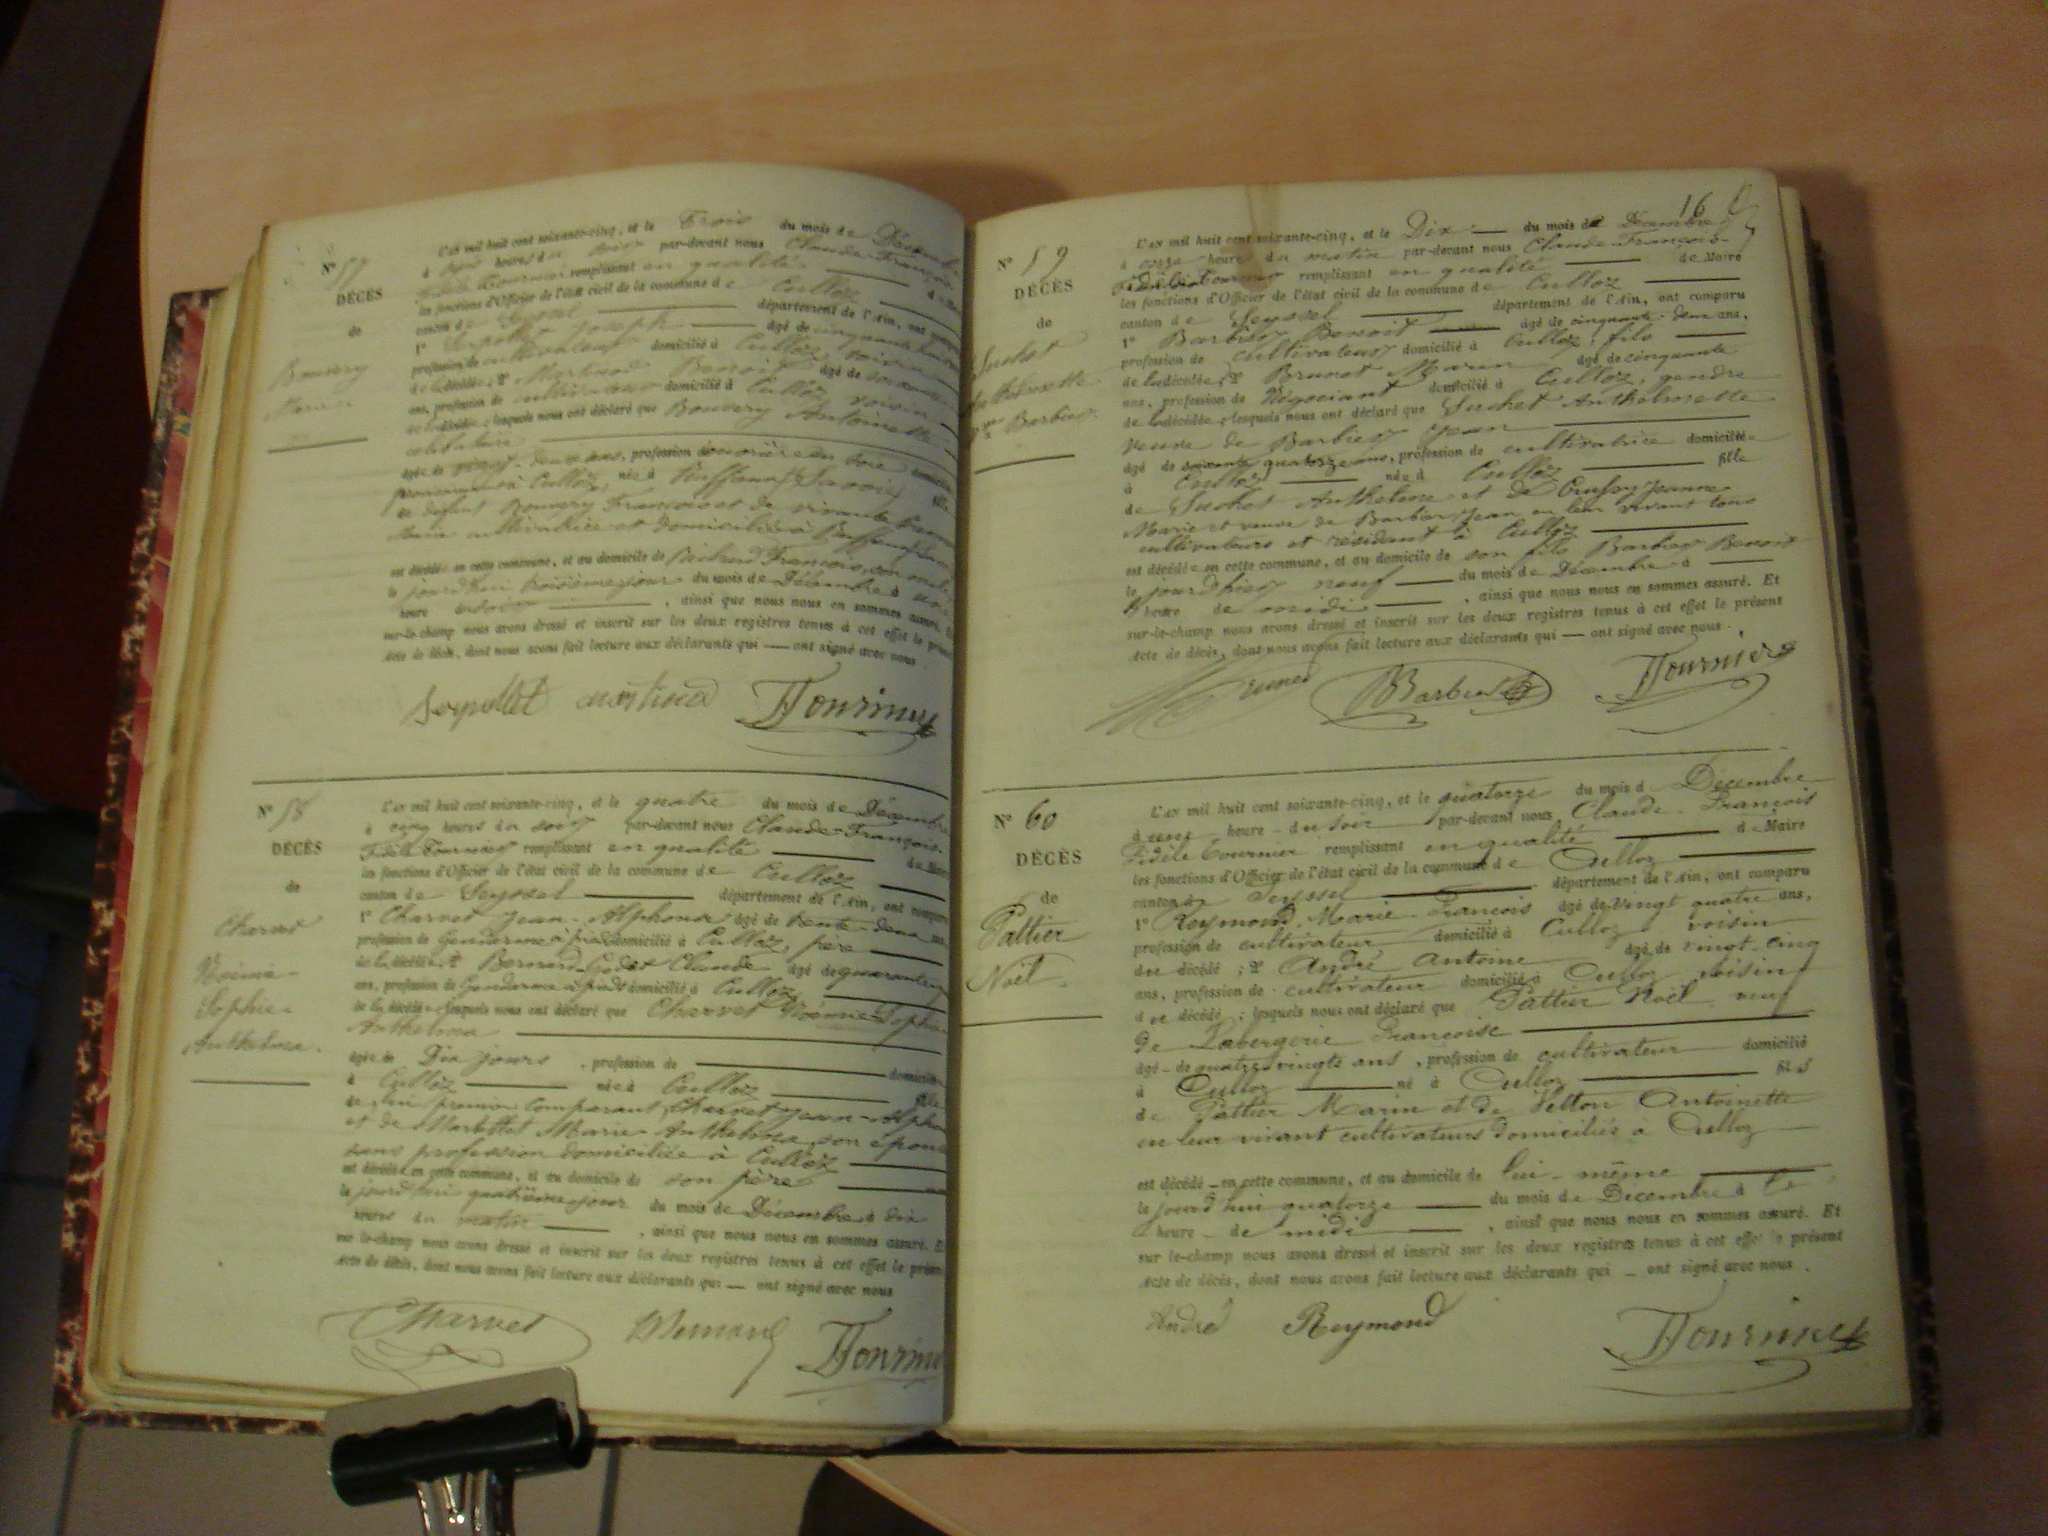 N° 57
DÉCÈS
de
Bouvery
L'an mil huit cent soixante-cinq, et le Trois du mois de Décembre
à heures du soir par-devant nous Claude-François
Fidèle Tournier remplissant en qualité de
les fonctions d'Officier de l'état civil de la commune de Culloz
canton de Seyssel département de l'Ain, ont comparu
1° Seypollet Joseph âgé de cinquante
profession de cultivateur domicilié à Culloz, voisin
de la décédée; 2° Martinod Benoit âgé de
ans, profession de cultivateur domicilié à Culloz voisin
de la décédée; lesquels nous ont déclaré que Bouvery Antoinette
célibataire
âgée de vingt-deux ans, profession d'ouvrière en soie domiciliée
à Culloz, née à Ruffieux Savoie fille
de défunt Bouvery François et de vivante
cultivatrice et domiciliée à
est décédée en cette commune, et au domicile de François, son oncle
le jourd'hui troisième jour du mois de Décembre à une
heure du soir, ainsi que nous nous en sommes assuré. Et
sur-le-champ nous avons dressé et inscrit sur les deux registres tenus à cet effet le présent
acte de décès, dont nous avons fait lecture aux déclarants qui — ont signé avec nous.
Seypollet Martinod Tournier
N° 58
DÉCÈS
de
Charvet
Noémie
Sophie
Anthelma.
L'an mil huit cent soixante-cinq, et le quatre du mois de Décembre
à cinq heures du soir par-devant nous Claude-François
Fidèle Tournier remplissant en qualité de Maire
les fonctions d'Officier de l'état civil de la commune de Culloz
canton de Seyssel département de l'Ain, ont comparu
1° Charvet Jean-Alphonse âgé de trente-deux ans,
profession de Gendarme à pied domicilié à Culloz, père
de la décédée; 2° Bernard-Godet Claude âgé de quarante
ans, profession de Gendarme à pied domicilié à Culloz,
de la décédée; lesquels nous ont déclaré que Charvet Noémie Sophie
Anthelma
âgée de Dix jours, profession de domiciliée
à Culloz née à Culloz fille
de lui premier comparant, Charvet Jean-Alphonse
et de Marie Anthelma son épouse
sans profession domiciliée à Culloz
est décédée en cette commune, et au domicile de son père
le jourd'hui quatrième jour du mois de Décembre à dix
heures du matin, ainsi que nous nous en sommes assuré. Et
sur-le-champ nous avons dressé et inscrit sur les deux registres tenus à cet effet le présent
acte de décès, dont nous avons fait lecture aux déclarants qui — ont signé avec nous
Charvet Bernard Tournier
16
N° 59
DÉCÈS
de
Suchet
Anthelmette
Vve Barbier
L'an mil huit cent soixante-cinq, et le Dix du mois de Décembre
à onze heure du matin par-devant nous Claude-François
Fidèle Tournier remplissant en qualité de Maire
les fonctions d'Officier de l'état civil de la commune de Culloz
canton de Seyssel département de l'Ain, ont comparu
1° Barbier Benoit âgé de cinquante-deux ans,
profession de cultivateur domicilié à Culloz, fils
de la décédée; 2° Brunet Marin âgé de cinquante
ans, profession de Négociant domicilié à Culloz, gendre
de la décédée; lesquels nous ont déclaré que Suchet Anthelmette
veuve de Barbier Jean
âgé de soixante quatorze ans, profession de cultivatrice domiciliée
à Culloz née à Culloz fille
de Suchet Anthelme et de Jeanne
Marie et veuve de Barbier Jean en leur vivant tous
cultivateurs et résidant à Culloz
est décédée en cette commune, et au domicile de son fils Barbier Benoit
le jourd'hier neuf du mois de Décembre à
heure de midi, ainsi que nous nous en sommes assuré. Et
sur-le-champ nous avons dressé et inscrit sur les deux registres tenus à cet effet le présent
acte de décès, dont nous avons fait lecture aux déclarants qui — ont signé avec nous.
Brunet Barbier Tournier
N° 60
DÉCÈS
de
Pattier
Noël.
L'an mil huit cent soixante-cinq, et le quatorze du mois d Décembre
à une heure du soir par-devant nous Claude-François
Fidèle Tournier remplissant en qualité de Maire
les fonctions d'Officier de l'état civil de la commune de Culloz
canton de Seyssel département de l'Ain, ont comparu
1° Reymond Marie-François âgé de vingt quatre ans,
profession de cultivateur domicilié à Culloz voisin
du décédé; 2° André Antoine âgé de vingt-cinq
ans, profession de cultivateur domicilié à Culloz voisin
du décédé; lesquels nous ont déclaré que Pattier Noël veuf
de Labergerie Françoise
âgé de quatre-vingts ans, profession de cultivateur domicilié
à Culloz né à Culloz fils
de Pattier Marin et de Velton Antoinette
en leur vivant cultivateurs domiciliés a Culloz
est décédé en cette commune, et au domicile de lui-même
le jourd'hui quatorze du mois de Decembre à
heure de midi, ainsi que nous nous en sommes assuré. Et
sur le-champ nous avons dressé et inscrit sur les deux registres tenus à cet effet le présent
acte de décès, dont nous avons fait lecture aux déclarants qui — ont signé avec nous.
André Reymond Tournier